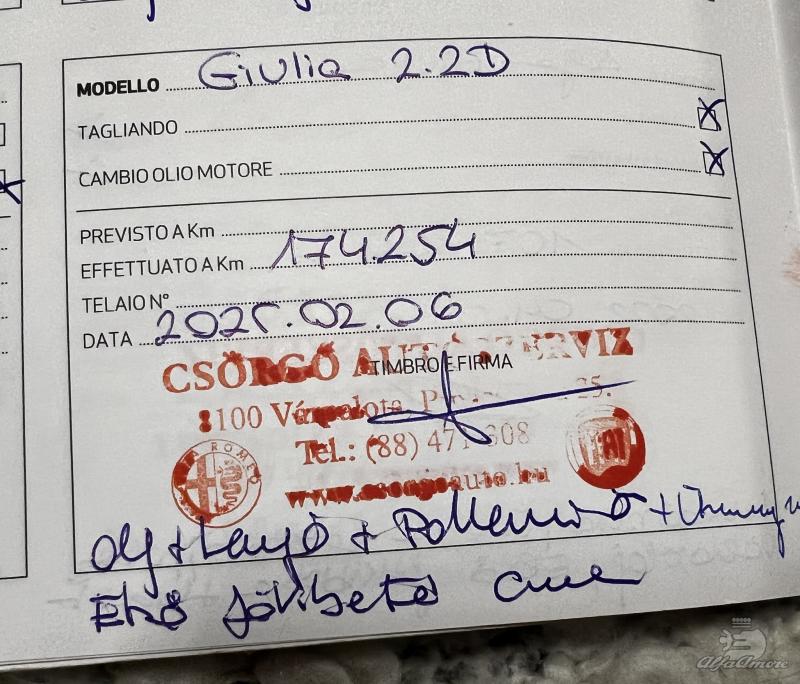 MODELLO Giulia 2.2D
TAGLIANDO
CAMBIO OLIO MOTORE
PREVISTO A Km
EFFETTUATO A Km 174.254
TELAIO N°
DATA 2025.02.06
CSÖRGŐ AUTÓSZERVIZ
TIMBRO E FIRMA
8100 Várpalota, 25.
Tel.: (88) 471-308
ALFA ROMEO
FIAT
www.csorgoauto.hu
Első
AlfaAmore